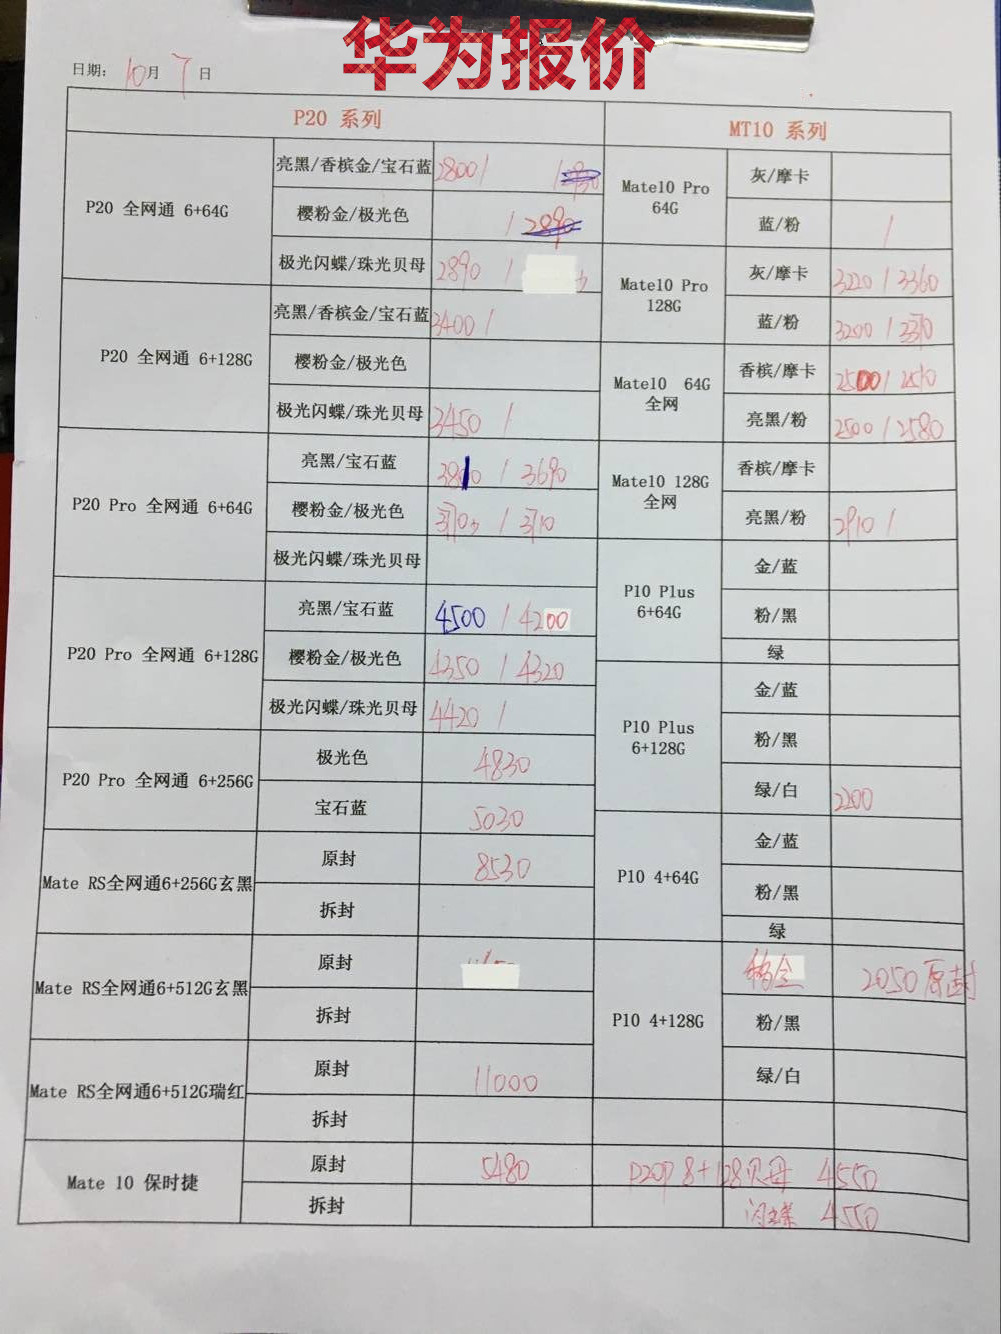 华为报价
日期: 10月 7日
P20 系列
P20 全网通 6+64G
亮黑/香槟金/宝石蓝 2800 /
樱粉金/极光色 / 2890
极光闪蝶/珠光贝母 2890 /
P20 全网通 6+128G
亮黑/香槟金/宝石蓝 3400 /
樱粉金/极光色
极光闪蝶/珠光贝母 3450 /
P20 Pro 全网通 6+64G
亮黑/宝石蓝 / 3690
樱粉金/极光色 / 3710
极光闪蝶/珠光贝母
P20 Pro 全网通 6+128G
亮黑/宝石蓝 4500 / 4200
樱粉金/极光色 4350 / 4320
极光闪蝶/珠光贝母 4420 /
P20 Pro 全网通 6+256G
极光色 4830
宝石蓝 5030
Mate RS全网通6+256G玄黑
原封 8530
拆封
Mate RS全网通6+512G玄黑
原封
拆封
Mate RS全网通6+512G瑞红
原封 11000
拆封
Mate 10 保时捷
原封 5480
拆封
MT10 系列
Mate10 Pro
64G
灰/摩卡
蓝/粉 /
Mate10 Pro
128G
灰/摩卡 3220 / 3360
蓝/粉 3200 /
Mate10 64G
全网
香槟/摩卡 2500 / 2510
亮黑/粉 2500 / 2580
Mate10 128G
全网
香槟/摩卡
亮黑/粉 2910 /
P10 Plus
6+64G
金/蓝
粉/黑
绿
P10 Plus
6+128G
金/蓝
粉/黑
绿/白 2200
P10 4+64G
金/蓝
粉/黑
绿
P10 4+128G
金 2050原封
粉/黑
绿/白
P20P 8+128贝母 4550
闪蝶 4550